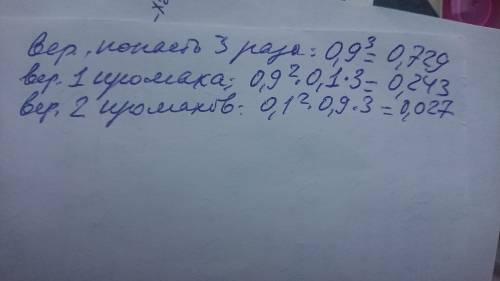 вер. попасть 3 раза: 0,9³ = 0,729
вер. 1 промаха: 0,9² · 0,1 · 3 = 0,243
вер. 2 промахов: 0,1² · 0,9 · 3 = 0,027